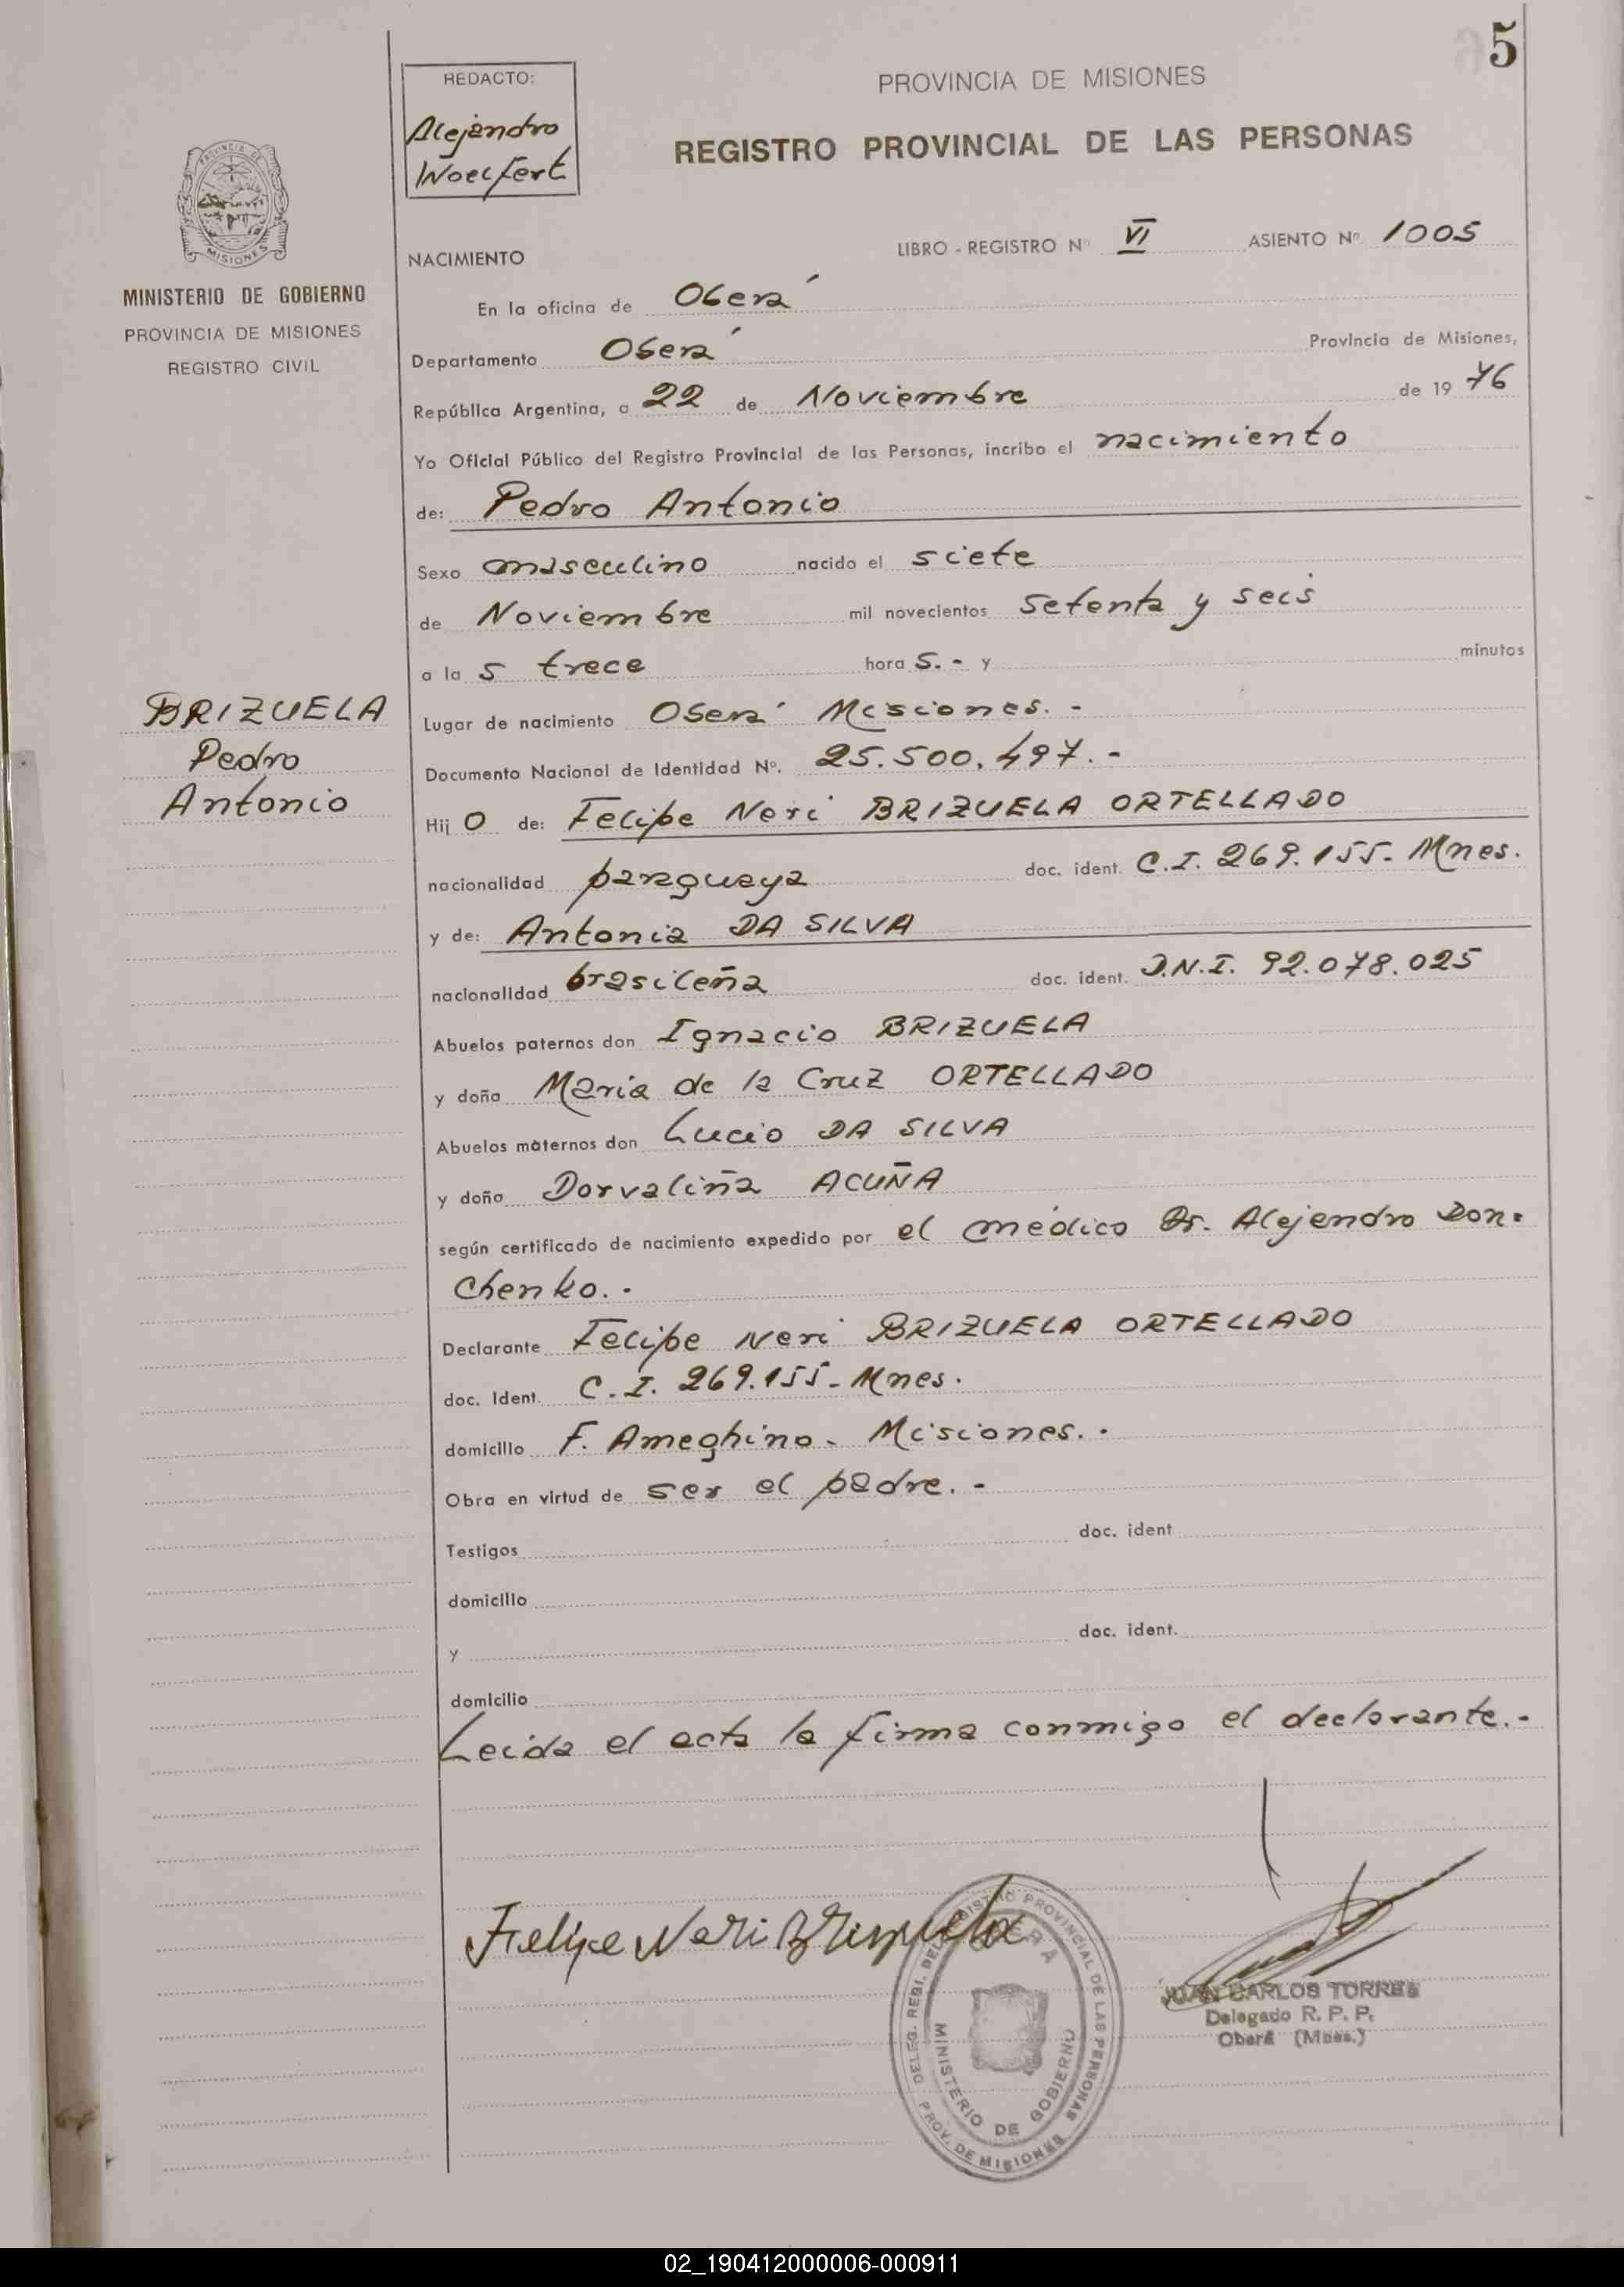 5
REDACTO:
Alejandro
Woelfert
PROVINCIA DE MISIONES
REGISTRO PROVINCIAL DE LAS PERSONAS
PROVINCIA DE
MISIONES
MINISTERIO DE GOBIERNO
PROVINCIA DE MISIONES
REGISTRO CIVIL
NACIMIENTO
LIBRO - REGISTRO Nº VI ASIENTO Nº 1005
En la oficina de Oberá
Departamento Oberá Provincia de Misiones,
República Argentina, a 22 de Noviembre de 19 76
Yo Oficial Público del Registro Provincial de las Personas, incribo el nacimiento
de: Pedro Antonio
Sexo masculino nacido el siete
de Noviembre mil novecientos setenta y seis
a la s trece hora s.- y minutos
Lugar de nacimiento Oberá Misiones.-
BRIZUELA
Pedro
Antonio
Documento Nacional de Identidad Nº. 25.500.497.-
Hij o de: Felipe Neri BRIZUELA ORTELLADO
nacionalidad paraguaya doc. ident. C.I. 269.155- Mnes.
y de: Antonia DA SILVA
nacionalidad brasileña doc. ident. D.N.I. 92.078.025
Abuelos paternos don Ignacio BRIZUELA
y doña Maria de la Cruz ORTELLADO
Abuelos maternos don Lucio DA SILVA
y doña Dorvaliña ACUÑA
según certificado de nacimiento expedido por el médico Dr. Alejandro Don-
chenko.-
Declarante Felipe Neri BRIZUELA ORTELLADO
doc. Ident. C.I. 269.155- Mnes.
domicilio F. Ameghino- Misiones.-
Obra en virtud de ser el padre.-
Testigos doc. ident
domicilio
y doc. ident.
domicilio
Leida el acta la firma conmigo el declarante.-
Felipe Neri Brizuela
DELEG. REGI. DEL REGISTRO PROVINCIAL DE LAS PERSONAS
OBERA
MINISTERIO DE GOBIERNO
PROV. DE MISIONES
JUAN CARLOS TORRES
Delegado R. P. P.
Oberá (Mnes.)
02_190412000006-000911